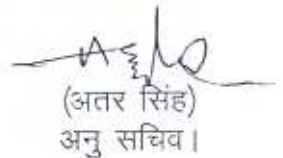 (अतर सिंह)
अनु सचिव।